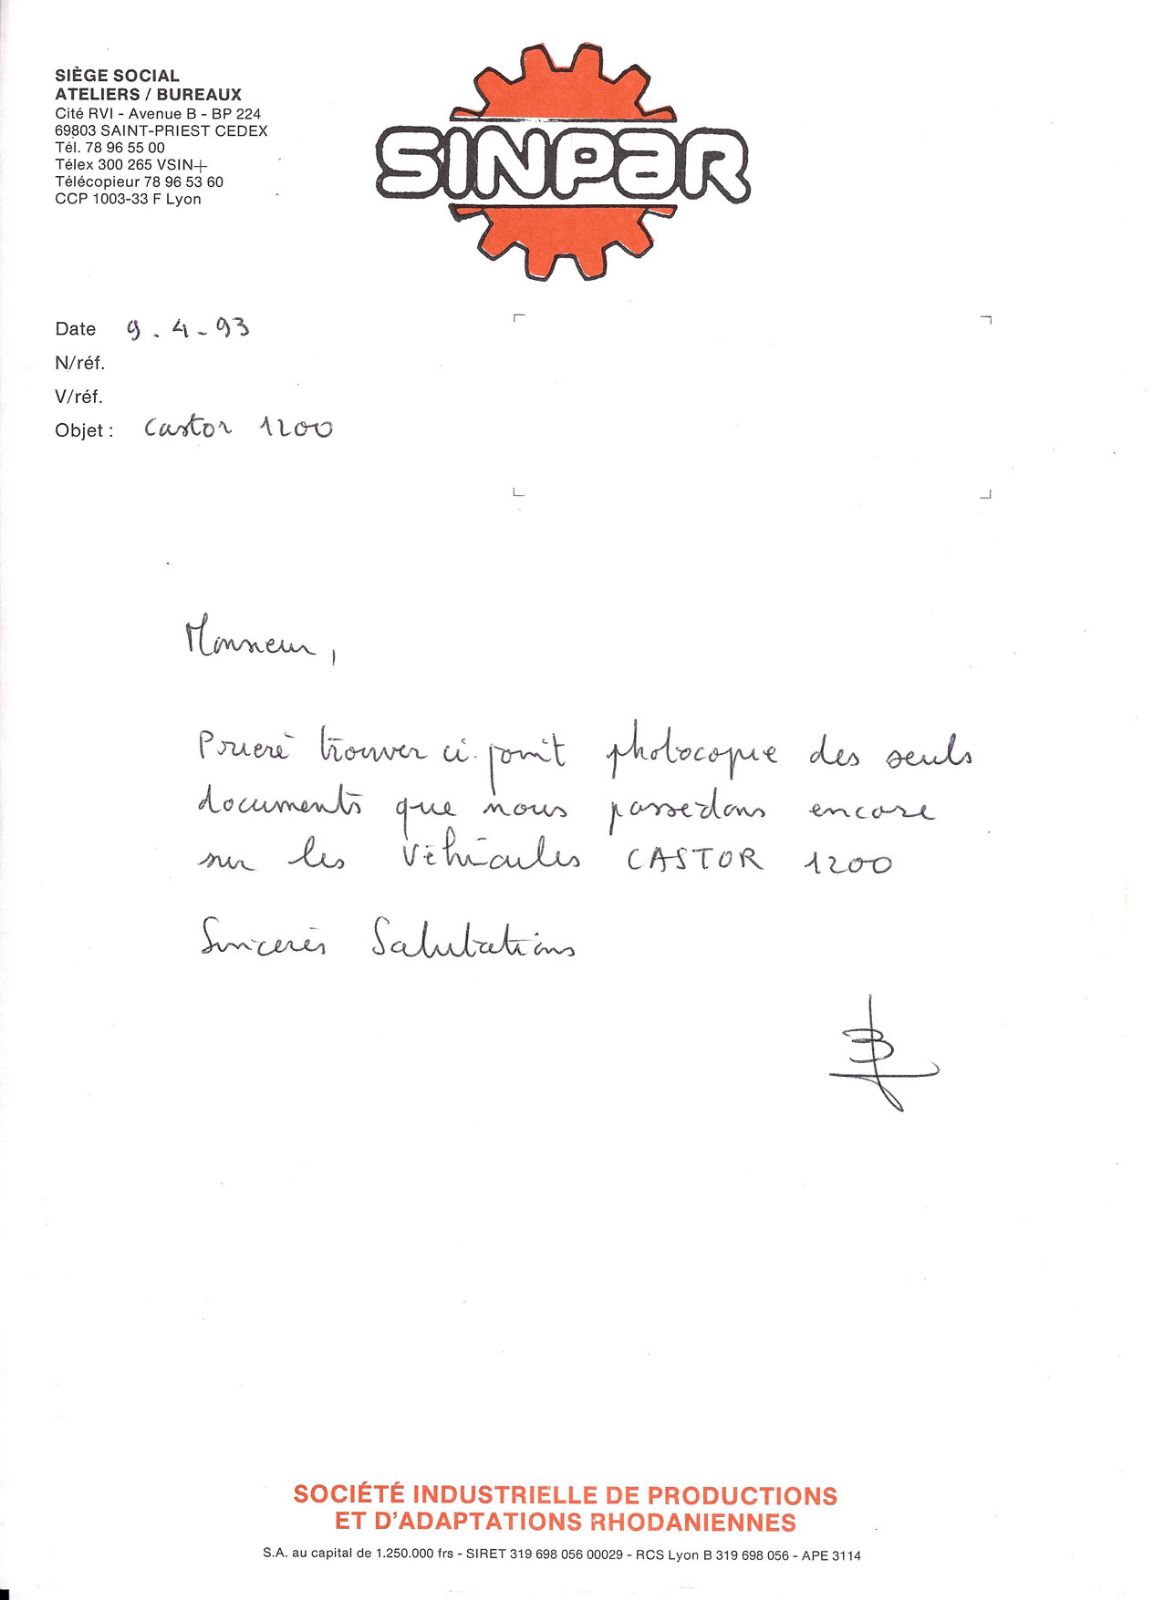 SIÈGE SOCIAL
ATELIERS / BUREAUX
Cité RVI - Avenue B - BP 224
69803 SAINT-PRIEST CEDEX
Tél. 78 96 55 00
Télex 300 265 VSIN+
Télécopieur 78 96 53 60
CCP 1003-33 F Lyon
SINPAR
Date 9.4-93
N/réf.
V/réf.
Objet : Castor 1200
Monsieur,
Prière trouver ci-joint photocopie des seuls
documents que nous possédons encore
sur les véhicules CASTOR 1200
Sincères Salutations
SOCIÉTÉ INDUSTRIELLE DE PRODUCTIONS
ET D'ADAPTATIONS RHODANIENNES
S.A. au capital de 1.250.000 frs - SIRET 319 698 056 00029 - RCS Lyon B 319 698 056 - APE 3114